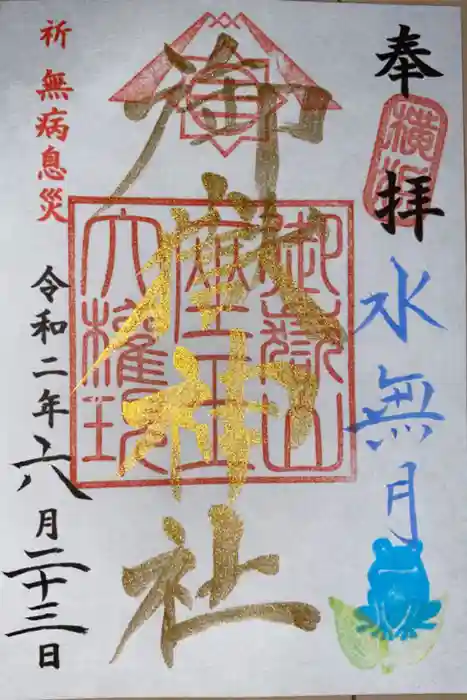 奉拝
水無月
御嶽神社
祈 無病息災
令和二年六月二十三日
御嶽山
座王
大権現